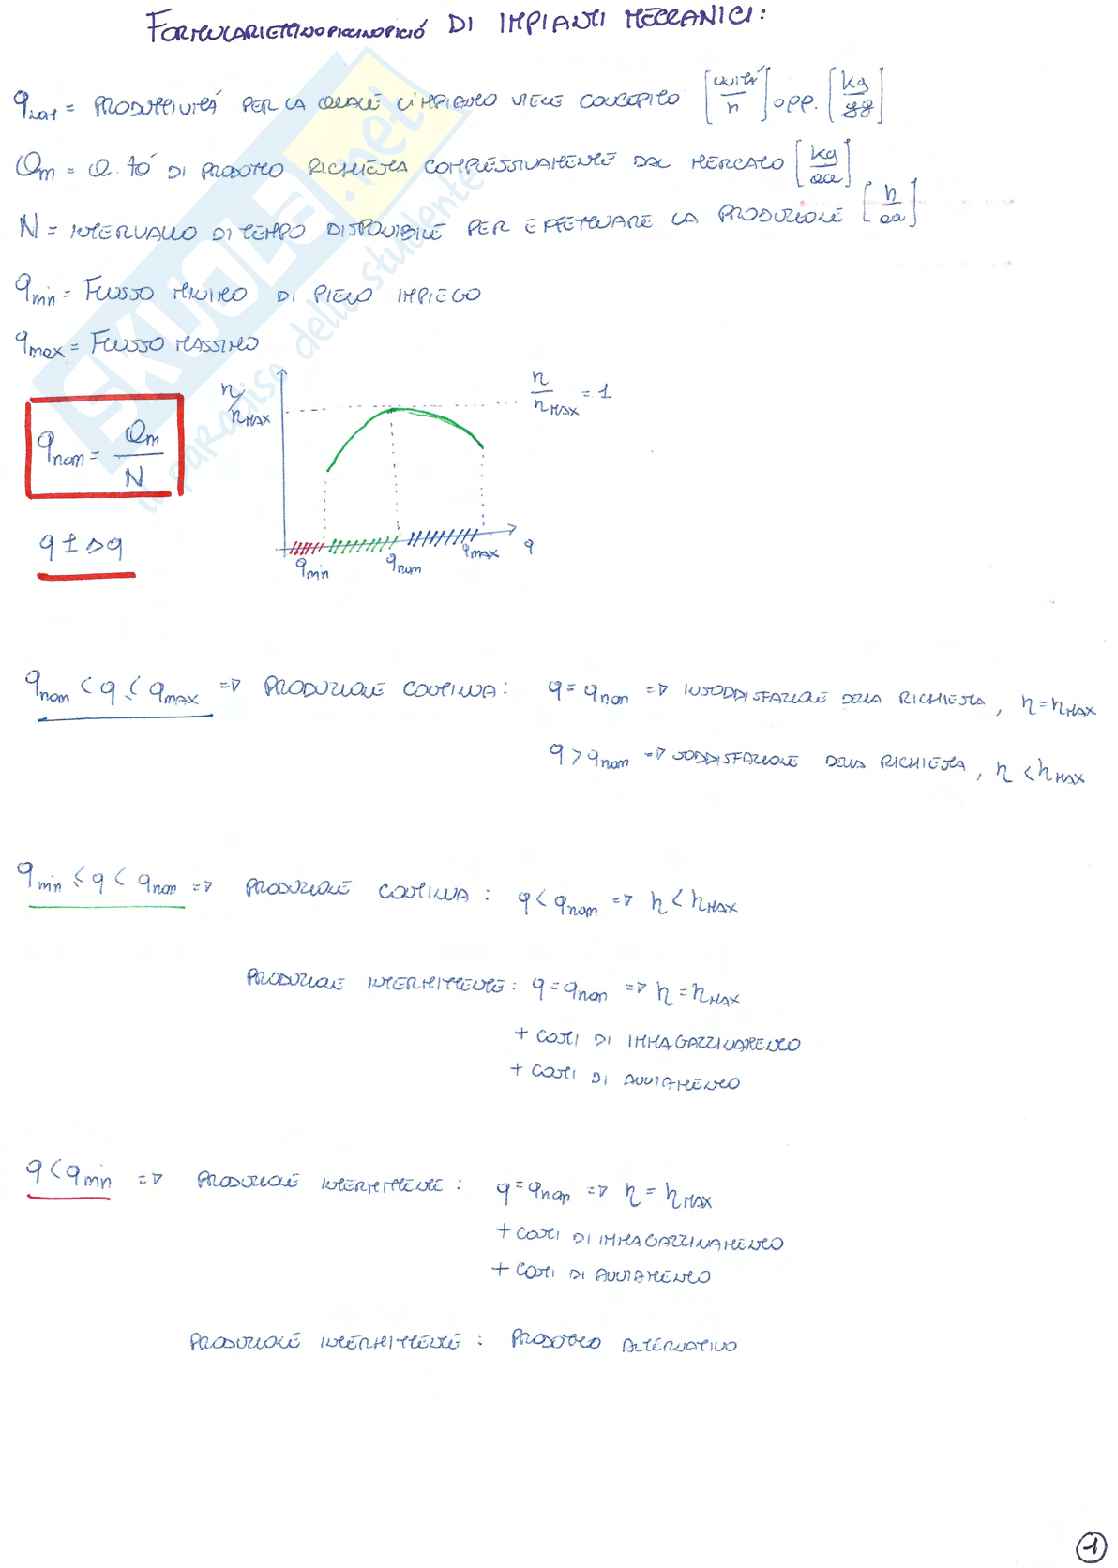 FORMULARIETTINOPICINOPICIÓ DI IMPIANTI MECCANICI:
qnom = PRODUTTIVITÁ PER LA QUALE L'IMPIANTO VIENE CONCEPITO [unitá/h] opp. [kg/gg]
Qm = Q.tó DI PRODOTTO RICHIESTA COMPLESSIVAMENTE DAL MERCATO [kg/aa]
N = INTERVALLO DI TEMPO DISPONIBILE PER EFFETTUARE LA PRODUZIONE [h/aa]
qmin = FLUSSO MINIMO DI PIENO IMPIEGO
qmax = FLUSSO MASSIMO
η/ηMAX
η/ηMAX = 1
qnom = Qm/N
q ± Δq
qmin qnom qMAX q
qnom < q ≤ qMAX => PRODUZIONE CONTINUA: q = qnom => INSODDISFAZIONE DELLA RICHIESTA, η = ηMAX
q > qnom => SODDISFAZIONE DELLA RICHIESTA, η < ηMAX
qmin ≤ q < qnom => PRODUZIONE CONTINUA: q < qnom => η < ηMAX
PRODUZIONE INTERMITTENTE: q = qnom => η = ηMAX
+ COSTI DI IMMAGAZZINAMENTO
+ COSTI DI AVVIAMENTO
q < qmin => PRODUZIONE INTERMITTENTE: q = qnom => η = ηMAX
+ COSTI DI IMMAGAZZINAMENTO
+ COSTI DI AVVIAMENTO
PRODUZIONE INTERMITTENTE: PRODOTTO ALTERNATIVO
1
SKUOLA.net
il paradiso dello studente